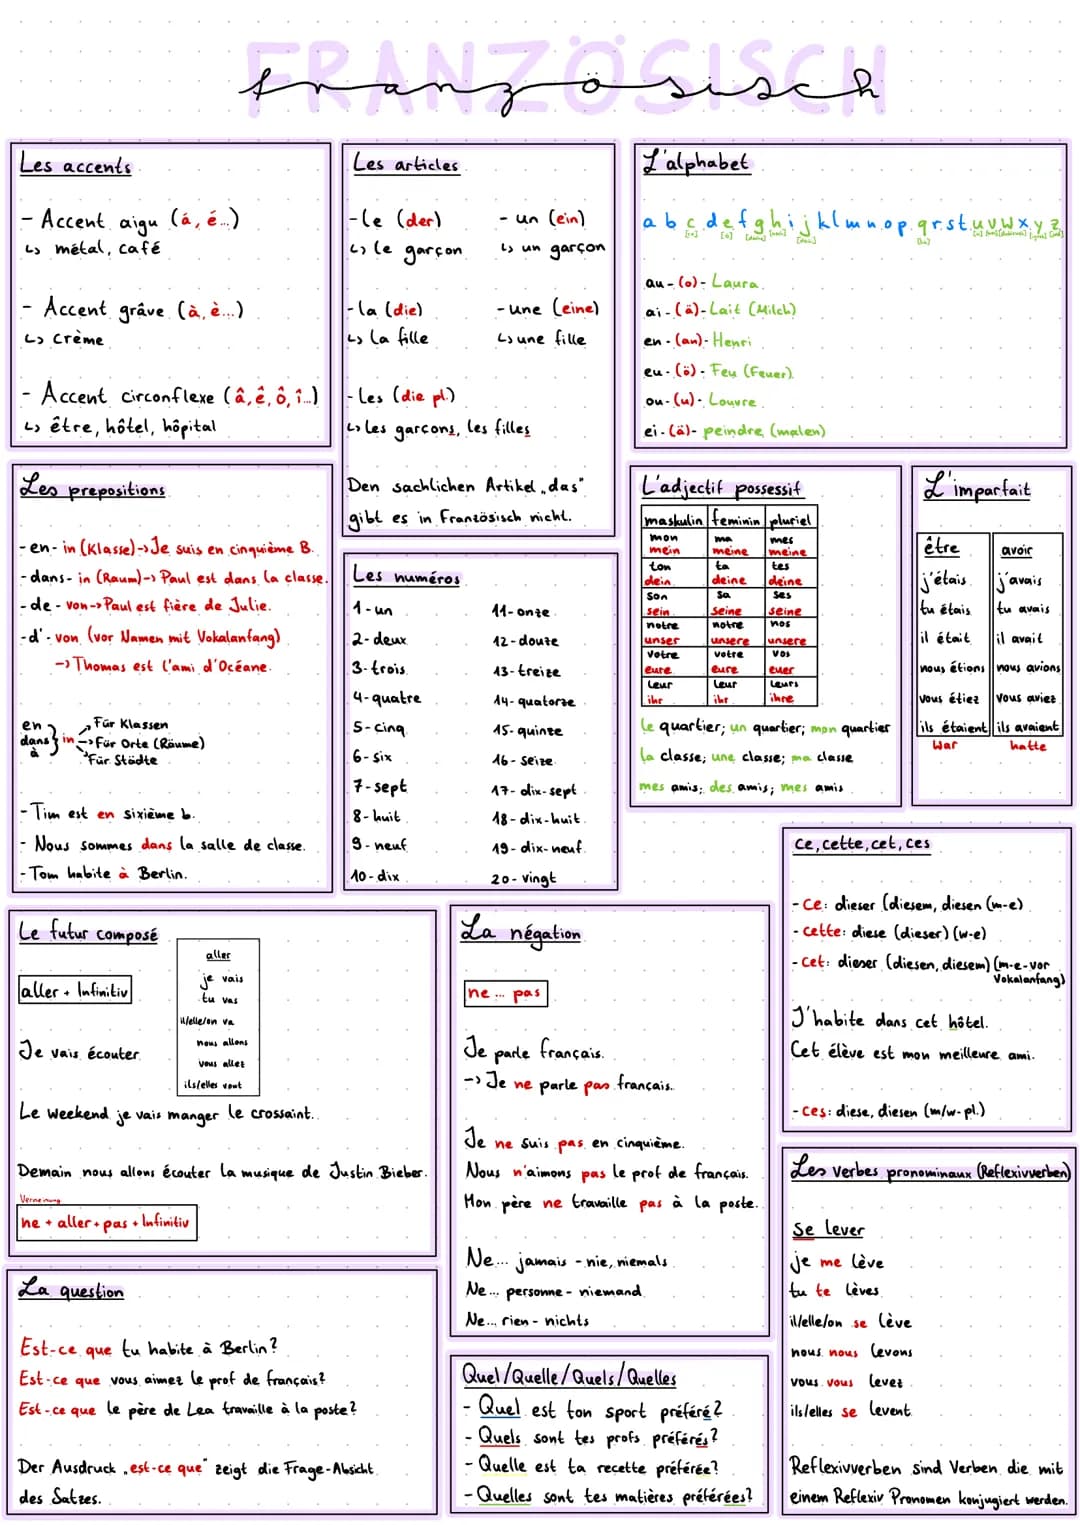 FRANZÖSISCH
französisch
Les accents
- Accent aigu (á, é...)
↳ métal, café
- Accent grâve (à, è...)
↳ crème
- Accent circonflexe (â, ê, ô, î...)
↳ être, hôtel, hôpital
Les articles
- le (der) - un (ein)
↳ le garçon ↳ un garçon
- la (die) - une (eine)
↳ la fille ↳ une fille
- les (die pl.)
↳ les garcons, les filles
Den sachlichen Artikel „das"
gibt es in Französisch nicht.
L'alphabet
a b c d e f g h i j k l m n o p q r s t u v w x y z
au - (o) - Laura
ai - (ä) - Lait (Milch)
en - (an) - Henri
eu - (ö) - Feu (Feuer)
ou - (u) - Louvre
ei - (ä) - peindre (malen)
Les prepositions
- en - in (Klasse) -> Je suis en cinquième B.
- dans - in (Raum) -> Paul est dans la classe.
- de - von -> Paul est fière de Julie.
- d' - von (vor Namen mit Vokalanfang)
-> Thomas est l'ami d'Océane.
en
dans
à
in
Für Klassen
Für Orte (Räume)
Für Städte
- Tim est en sixième b.
- Nous sommes dans la salle de classe.
- Tom habite à Berlin.
Les numéros
1 - un 11 - onze
2 - deux 12 - douze
3 - trois 13 - treize
4 - quatre 14 - quatorze
5 - cinq 15 - quinze
6 - six 16 - seize
7 - sept 17 - dix-sept
8 - huit 18 - dix-huit
9 - neuf 19 - dix-neuf
10 - dix 20 - vingt
L'adjectif possessif
maskulin feminin pluriel
mon ma mes
mein meine meine
ton ta tes
dein deine deine
son sa ses
sein seine seine
notre notre nos
unser unsere unsere
votre votre vos
eure eure euer
leur leur leurs
ihr ihr ihre
le quartier; un quartier; mon quartier
la classe; une classe; ma classe
mes amis; des amis; mes amis
L'imparfait
être avoir
j'étais j'avais
tu étais tu avais
il était il avait
nous étions nous avions
vous étiez vous aviez
ils étaient ils avaient
war hatte
ce, cette, cet, ces
- Ce: dieser (diesem, diesen (m-e)
- cette: diese (dieser) (w-e)
- Cet: dieser (diesen, diesem) (m-e-vor
Vokalanfang)
J'habite dans cet hôtel.
Cet élève est mon meilleure ami.
- Ces: diese, diesen (m/w-pl.)
Le futur composé
aller + Infinitiv
Je vais écouter
aller
je vais
tu vas
il/elle/on va
nous allons
vous allez
ils/elles vont
Le Weekend je vais manger le crossaint.
Demain nous allons écouter la musique de Justin Bieber.
Verneinung
ne + aller + pas + Infinitiv
La négation
ne ... pas
Je parle français.
-> Je ne parle pas français.
Je ne suis pas en cinquième.
Nous n'aimons pas le prof de français.
Mon père ne travaille pas à la poste.
Ne... jamais - nie, niemals
Ne... personne - niemand
Ne... rien - nichts
Les verbes pronominaux (Reflexivverben)
se lever
je me lève
tu te lèves
il/elle/on se lève
nous nous levons
vous vous levez
ils/elles se levent
Reflexivverben sind Verben die mit
einem Reflexiv Pronomen konjugiert werden.
La question
Est-ce que tu habite à Berlin?
Est-ce que vous aimez le prof de français?
Est-ce que le père de Lea travaille à la poste?
Der Ausdruck „est-ce que" zeigt die Frage-Absicht
des Satzes.
Quel/Quelle/Quels/Quelles
- Quel est ton sport préféré?
- Quels sont tes profs préférés?
- Quelle est ta recette préférée?
- Quelles sont tes matières préférées?